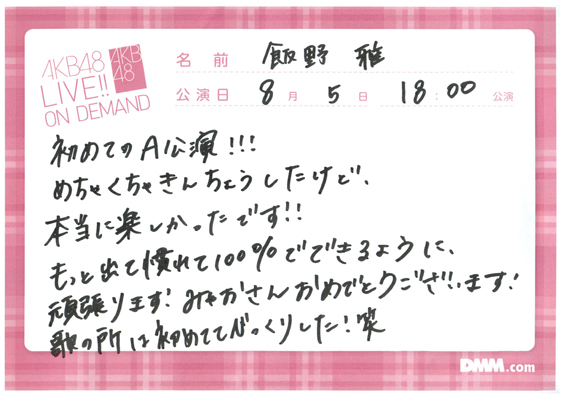 AKB48
LIVE!!
ON DEMAND
AKB
48
名前 飯野 雅
公演日 8月 5日 18:00 公演
初めてのA公演!!!
めちゃくちゃきんちょうしたけど、
本当に楽しかったです!!
もっと出て慣れて100%でできるように、
頑張ります!みゃおさんおめでとうございます!
歌の所は初めててびっくりした!笑
DMM.com